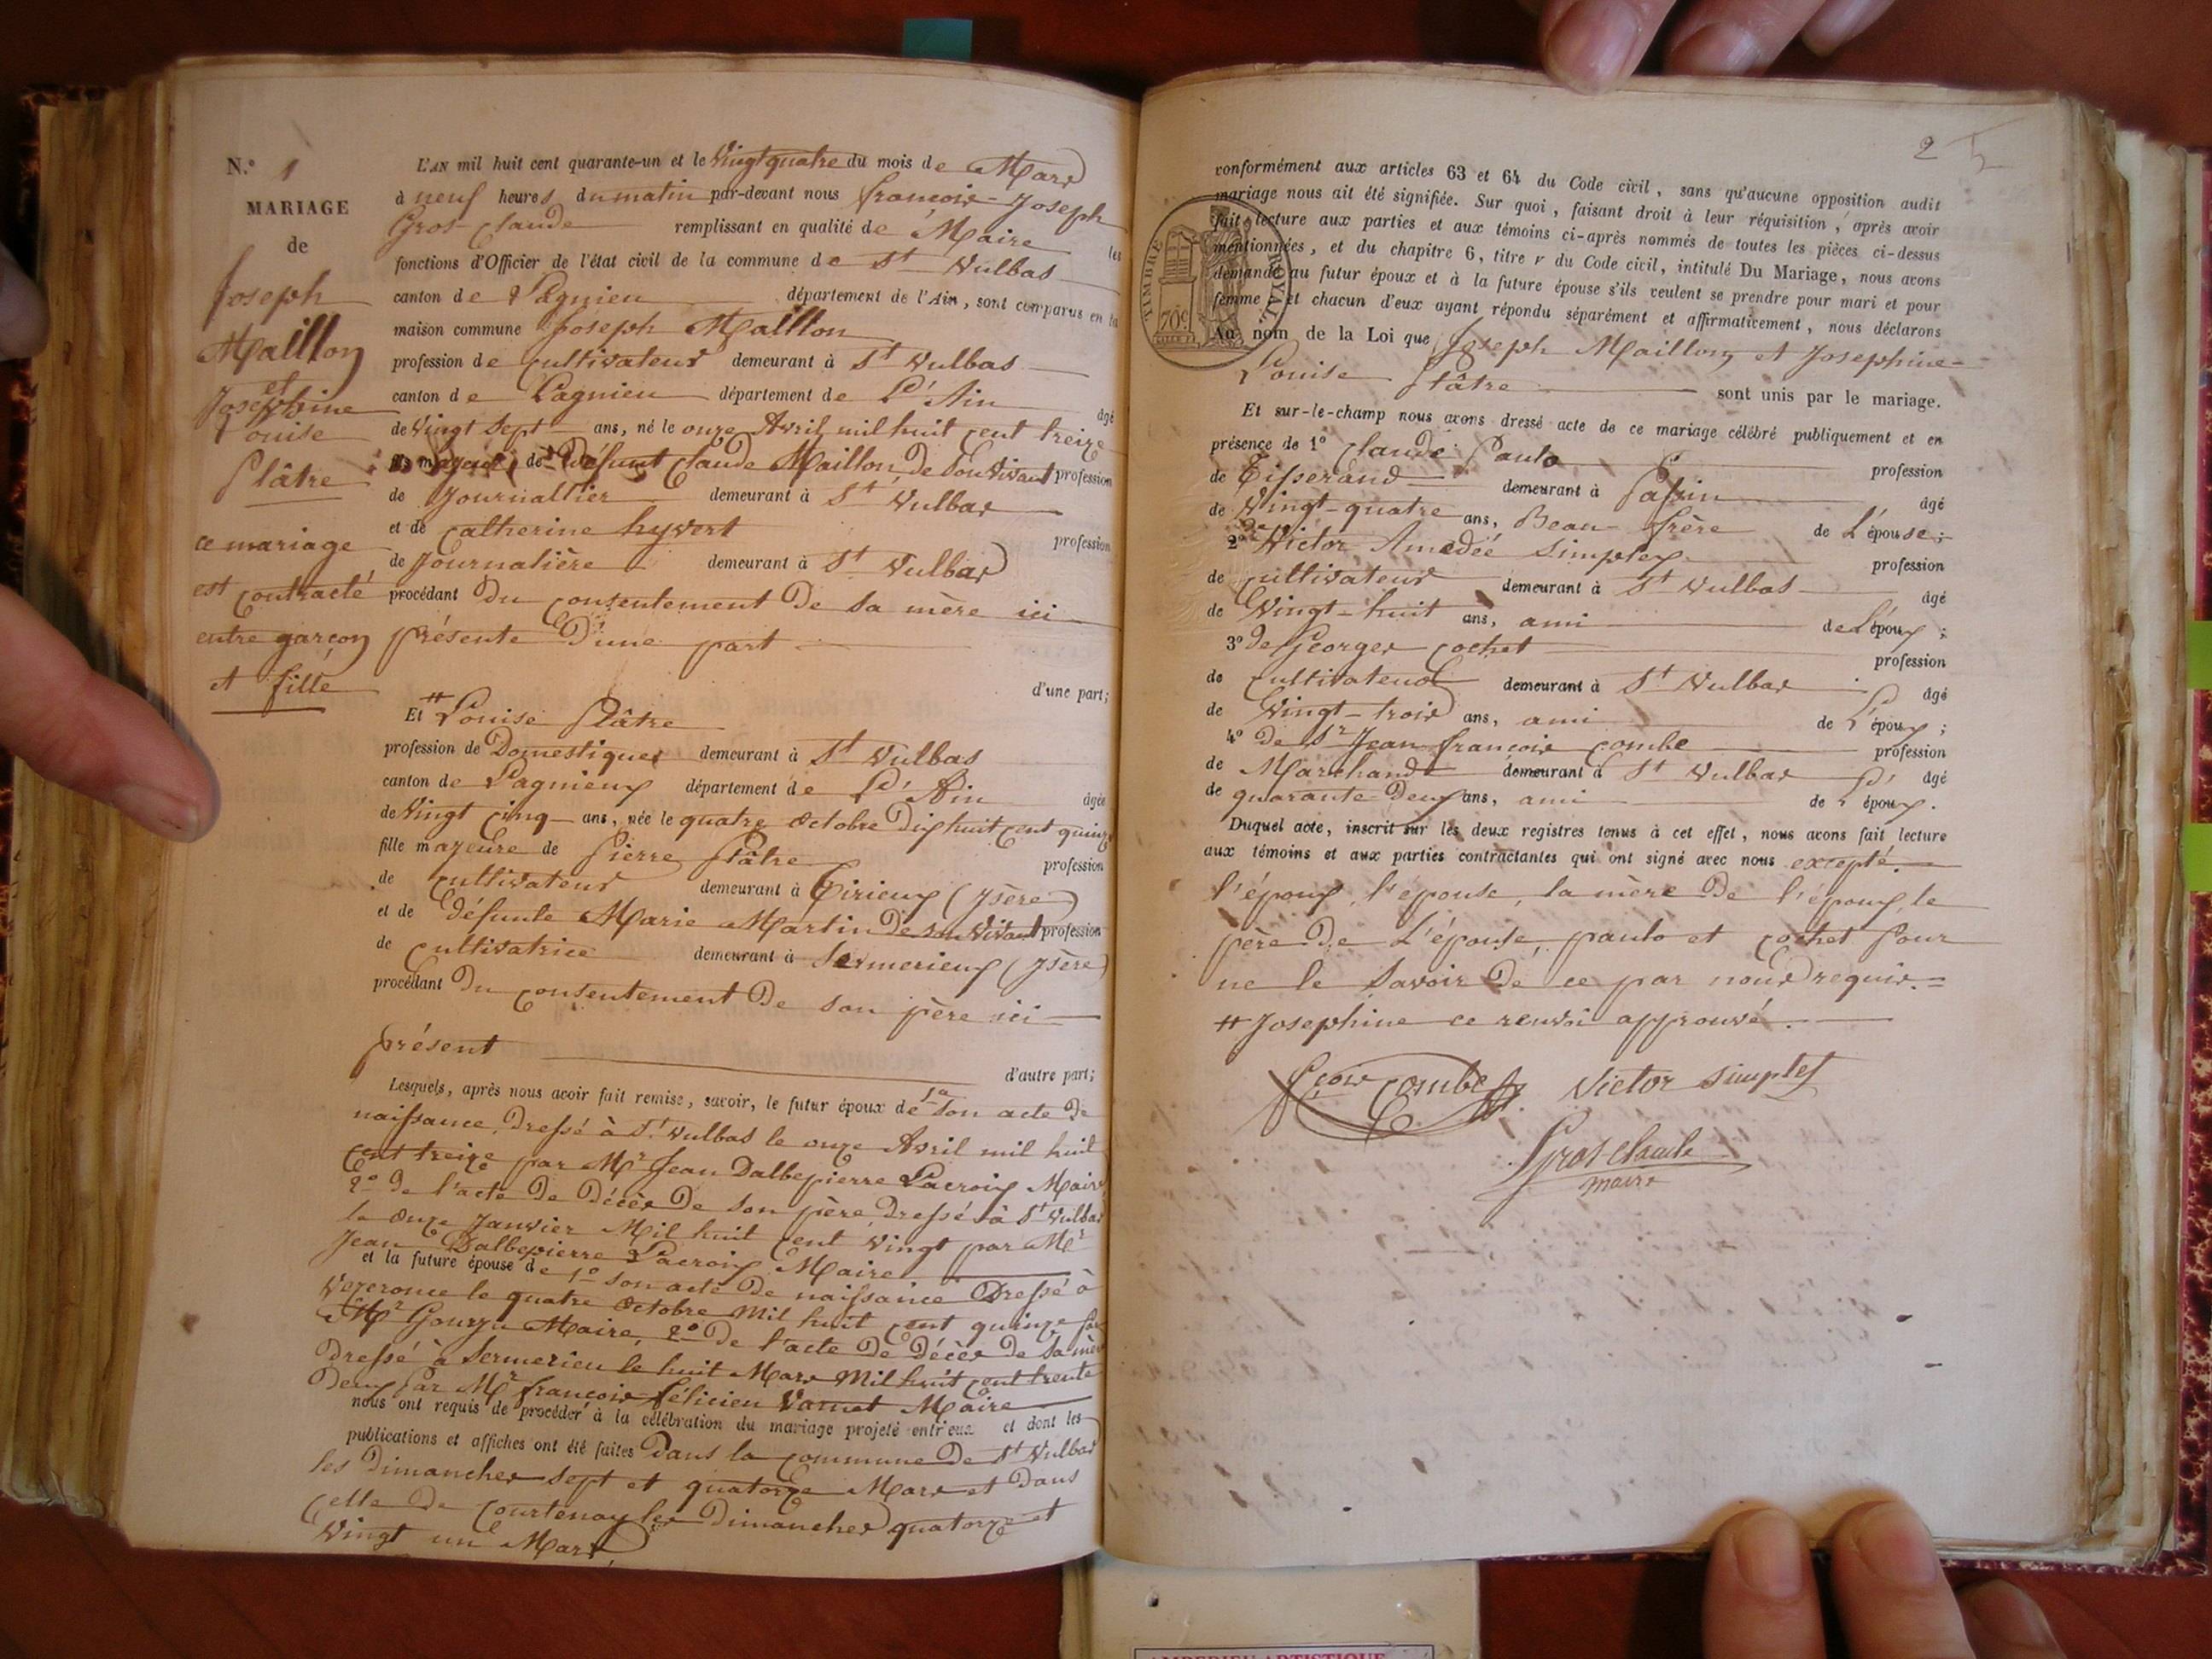 N.° 1
MARIAGE
de
Joseph
Maillon
et
Josephine
Louise
Plâtre
ce mariage
est contracté
entre garçon
et fille
L'AN mil huit cent quarante-un et le Vingt quatre du mois de Mars
à neuf heures du matin par-devant nous françois-Joseph
Gros-Claude remplissant en qualité de Maire les
fonctions d'Officier de l'état civil de la commune de St Vulbas
canton de Lagnieu département de l'Ain, sont comparus en la
maison commune Joseph Maillon
profession de cultivateur demeurant à St Vulbas
canton de Lagnieu département de L'Ain âgé
de Vingt Sept ans, né le onze Avril mil huit cent treize
fils majeur de défunt Claude Maillon, de Son Vivant profession
de Journallier demeurant à St Vulbas
et de Catherine hyvert profession
de Journalière demeurant à St Vulbas
procédant du consentement de sa mère ici
présente d'une part
d'une part;
Et # Louise Plâtre
profession de Domestique demeurant à St Vulbas
canton de Lagnieux département de L'Ain âgée
de Vingt cinq ans, née le quatre Octobre dix huit cent quinze
fille majeure de Pierre Plâtre profession
de cultivateur demeurant à Tirieux (Isère)
et de défunte Marie Martin de son Vivant profession
de cultivatrice demeurant à Sermerieux (Isère)
procédant du consentement de son père ici
présent
d'autre part;
Lesquels, après nous avoir fait remise, savoir, le futur époux de 1° son acte de
naissance, dressé à St Vulbas le onze Avril mil huit
cent treize par Mr Jean Dalbepierre Lacroix Maire
2° de l'acte de décès de son père, dressé à St Vulbas
le onze Janvier Mil huit cent Vingt par Mr
Jean Dalbepierre Lacroix Maire
et la future épouse de 1° son acte de naissance dressé à
Vezeronce le quatre Octobre Mil huit cent quinze par
Mr Maire, 2° de l'acte de décès de sa mère
dressé à Sermerieu le huit Mars Mil huit cent trente
deux par Mr françois félicien Maire
nous ont requis de procéder à la célébration du mariage projeté entr'eux et dont les
publications et affiches ont été faites dans la commune de St Vulbas
les dimanches sept et quatorze Mars et dans
celle de Courtenay les dimanches quatorze et
Vingt un Mars
2
TIMBRE ROYAL
70c
conformément aux articles 63 et 64 du Code civil, sans qu'aucune opposition audit
mariage nous ait été signifiée. Sur quoi, faisant droit à leur réquisition, après avoir
fait lecture aux parties et aux témoins ci-après nommés de toutes les pièces ci-dessus
mentionnées, et du chapitre 6, titre v du Code civil, intitulé Du Mariage, nous avons
demandé au futur époux et à la future épouse s'ils veulent se prendre pour mari et pour
femme, et chacun d'eux ayant répondu séparément et affirmativement, nous déclarons
Au nom de la Loi que Joseph Maillon et Josephine-
Louise Plâtre sont unis par le mariage.
Et sur-le-champ nous avons dressé acte de ce mariage célébré publiquement et en
présence de 1° Claude Paulo profession
de Tisserand demeurant à Passin âgé
de Vingt-quatre ans, Beau-frère de L'épouse;
2° de Victor Amedée Simplex profession
de cultivateur demeurant à St Vulbas âgé
de Vingt-huit ans, ami de L'époux;
3° de Georges Cochet profession
de cultivateur demeurant à St Vulbas âgé
de Vingt-trois ans, ami de L'époux;
4° de Sr Jean françois Combe profession
de Marchand demeurant à St Vulbas âgé
de quarante deux ans, ami de L'époux.
Duquel acte, inscrit sur les deux registres tenus à cet effet, nous avons fait lecture
aux témoins et aux parties contractantes qui ont signé avec nous excepté
l'époux, l'épouse, la mère de l'époux, le
père de L'épouse, paulo et Cochet pour
ne le Savoir de ce par nous requis. =
# Josephine ce renvoi approuvé.
fçois Combe Victor Simplex
Gros Claude
maire
AMBERIEU ARTISTIQUE